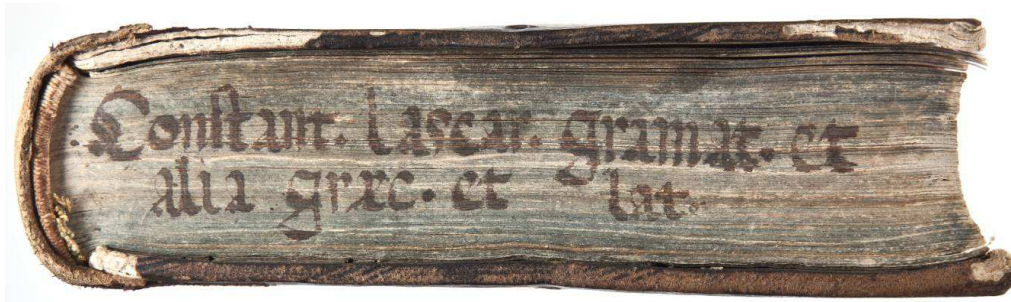 Conſtant. laſcar. gramat. et
alia græc. et lat.